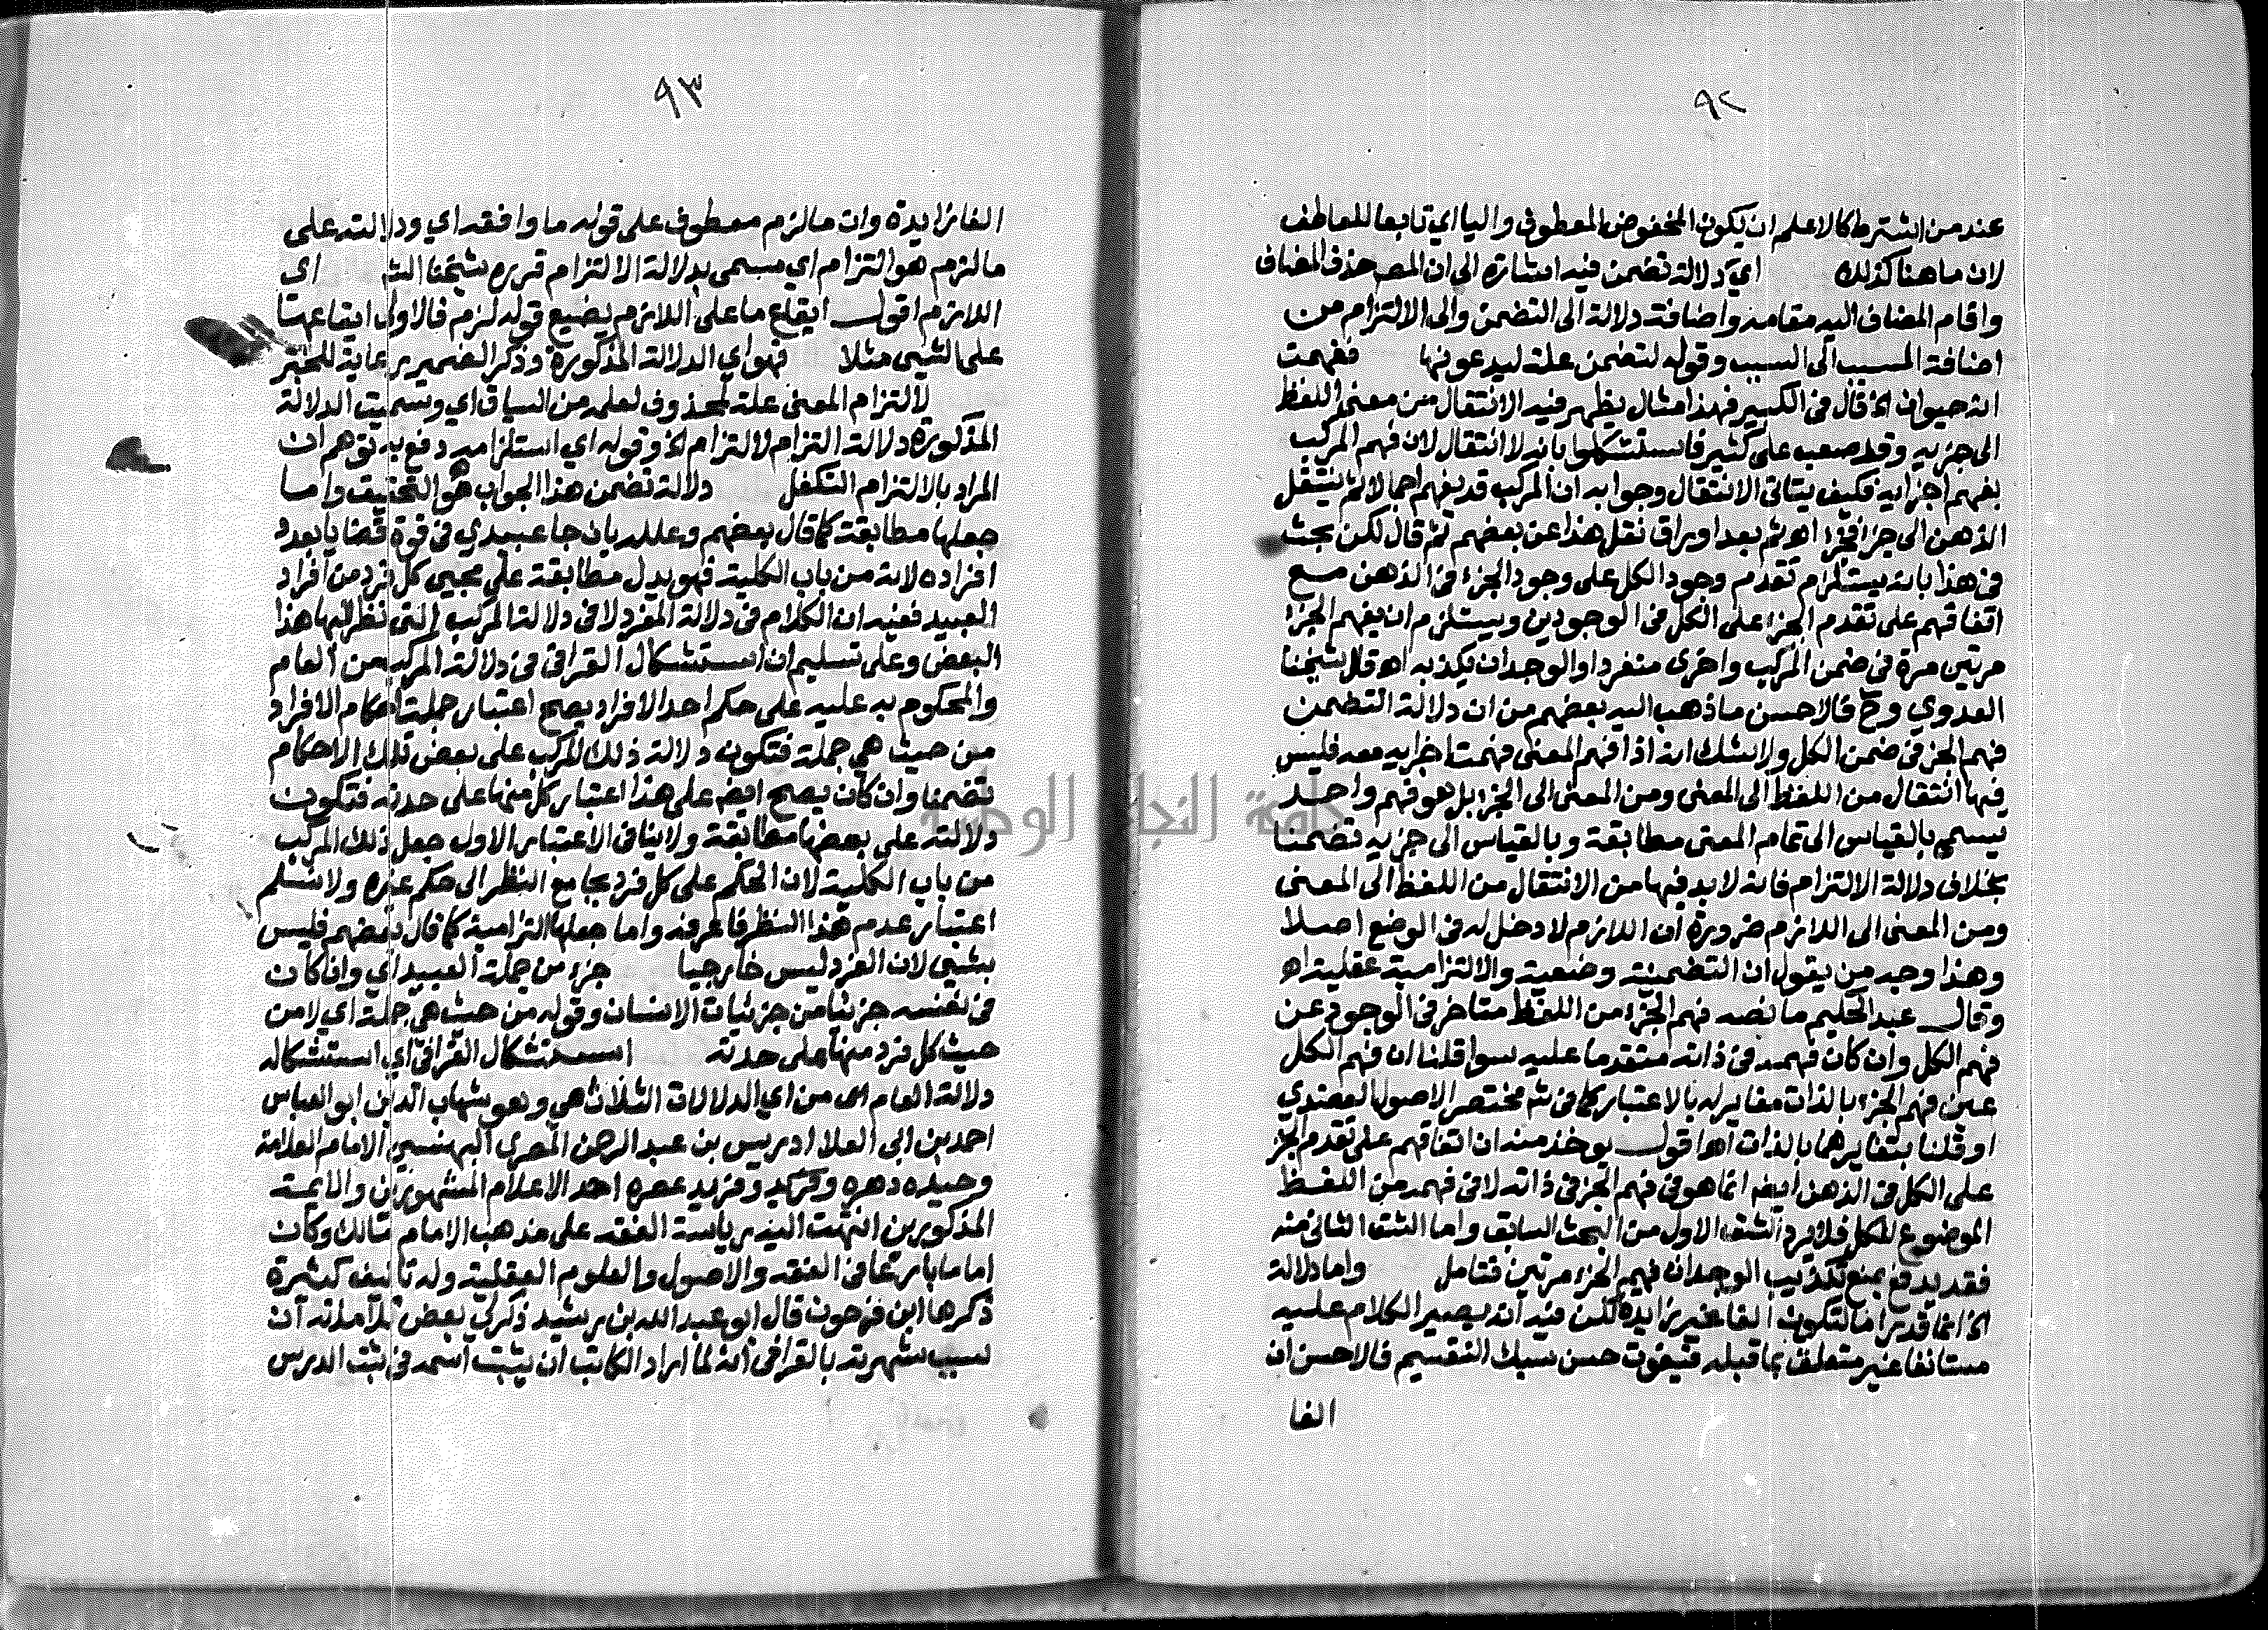 ٩٢
عند من اشترط كالاعلم ان يكون المخفوض المعطوف واليا اي تابعا للعاطف
لان ما هنا كذلك اي دلالة تضمن فيه اشارة الى ان المص حذف المضاف
واقام المضاف اليه مقامه واضافة دلالة الى التضمن والى الالتزام من
اضافة المسبب الى السبب وقوله لتضمن علة ليدعونها ففهمت
انه حيوان اﻫ قال في الكبير فهذا مثال يظهر فيه الانتقال من معنى اللفظ
الى جزيه وقد صعب على كثير فاستشكلوا بانه لا انتقال لان فهم المركب
بفهم اجزايه فكيف يتاتى الانتقال وجوابه ان المركب قد يفهم اجمالا ثم ينتقل
الذهن الى جزء فجزء اه ثم بعد اوراق نقل هذا عن بعضهم ثم قال لكن بحث
في هذا بانه يستلزم تقدم وجود الكل على وجود الجزء في الذهن مع
اتفاقهم على تقدم الجزء على الكل في الوجودين ويستلزم ان يفهم الجزء
مرتين مرة في ضمن المركب واخرى منفردا والوجدان يكذبه اه قال شيخنا
العدوي وح فالاحسن ما ذهب اليه بعضهم من ان دلالة التضمن
فهم الجزء في ضمن الكل ولا شك انه اذا فهم المعنى فهمت اجزايه معه فليس
فيها انتقال من اللفظ الى المعنى ومن المعنى الى الجزء بل هو فهم واحد
يسمى بالقياس الى تمام المعنى مطابقة وبالقياس الى جزيه تضمنا
بخلاف دلالة الالتزام فانه لا بد فيها من الانتقال من اللفظ الى المعنى
ومن المعنى الى اللازم ضرورة ان اللازم لا دخل له في الوضع اصلا
وهذا وجه من يقول ان التضمنية وضعية والالتزامية عقلية اه
وقال عبد الحكيم ما نصه فهم الجزء من اللفظ متاخر في الوجود عن
فهم الكل وان كان فهمه في ذاته متقدما عليه سوا قلنا ان فهم الكل
عين فهم الجزء بالذات مغاير له بالاعتبار كما في ثم مختصر الاصول العضدي
او قلنا بتغايرهما بالذات اه اقول يوخذ منه ان اتفاقهم على تقدم الجزء
على الكل في الذهن ايضا انما هو في فهم الجزء في ذاته لا في فهمه من اللفظ
الموضوع للكل فلا يرد الشق الاول من البحث السابق واما الشق الثاني منه
فقد يدفع بمنع تكذيب الوجدان فهم الجزء مرتين فتامل واما دلالة
اﻫ انما قدر اما لتكون الفا غير زايدة لكن فيه انه يصير الكلام عليه
مستانفا غير متعلق بما قبله فيفوت حسن سبك التقسيم فالاحسن ان
الفا
٩٣
الفا زايدة وان ما لزم معطوف على قوله ما وافقه اي ودلالته على
ما لزم هو التزام اي مسمى بدلالة الالتزام قرره شيخنا الش اي
اللازم اقول ايقاع ما على اللازم يضيع قوله لزم فالاولى ايقاعها
على الشي مثلا فهو اي الدلالة المذكورة وذكر الضمير رعاية للخبر
لالتزام المعنى علة لمحذوف لعلمه من السياق اي وسميت الدلالة
المذكورة دلالة التزام لالتزام اﻫ وقوله اي استلزامه دفع به توهم ان
المراد بالالتزام التكفل دلالة تضمن هذا الجواب هو التحقيق واما
جعلها مطابقة كما قال بعضهم وعلله بان جا عبيدي في قوة قضايا بعدد
افراده لانه من باب الكلية فهو يدل مطابقة على مجيى كل فرد من افراد
العبيد ففيه ان الكلام في دلالة المفرد لا في دلالة المركب التي نظر اليها هذا
البعض وعلى تسليم ان استشكال القرافي في دلالة المركب من العام
والمحكوم به عليه على حكم احد الافراد يصح اعتبار جملة احكام الافراد
من حيث هي جملة فتكون دلالة ذلك المركب على بعض تلك الاحكام
تضمنا وان كان يصح ايضا على هذا اعتبار كل منها على حدته فتكون
دلالته على بعضها مطابقة ولا ينافي الاعتبار الاول جعل ذلك المركب
من باب الكلية لان الحكم على كل فرد يجامع النظر الى حكم غيره ولا نسلم
اعتبار عدم هذا النظر فاعرفه واما جعلها التزامية كما قال بعضهم فليس
بشي لان الفرد ليس خارجيا جزء من جملة العبيد اي وان كان
في نفسه جزئيا من جزئيات الانسان وقوله من حيث هي جملة اي لا من
حيث كل فرد منها على حدته استشكال القرافي اي استشكاله
دلالة العام اي من اي الدلالات الثلاث هي وهو شهاب الدين ابو العباس
احمد بن ابى العلا ادريس بن عبد الرحمن المصري البهنسي الامام العلامة
وحيده دهره وفريد عصره احد الاعلام المشهورين والايمة
المذكورين انتهت اليه رياسة الفقه على مذهب الامام مالك وكان
اماما بارعا في الفقه والاصول والعلوم العقلية وله تاليف كثيرة
ذكرها ابن فرحون قال ابو عبد الله بن رشيد ذكر لي بعض تلامذته ان
سبب شهرته بالقرافي انه لما اراد الكاتب ان يثبت اسمه في ثبت الدرس
جامعة النجاح الوطنية